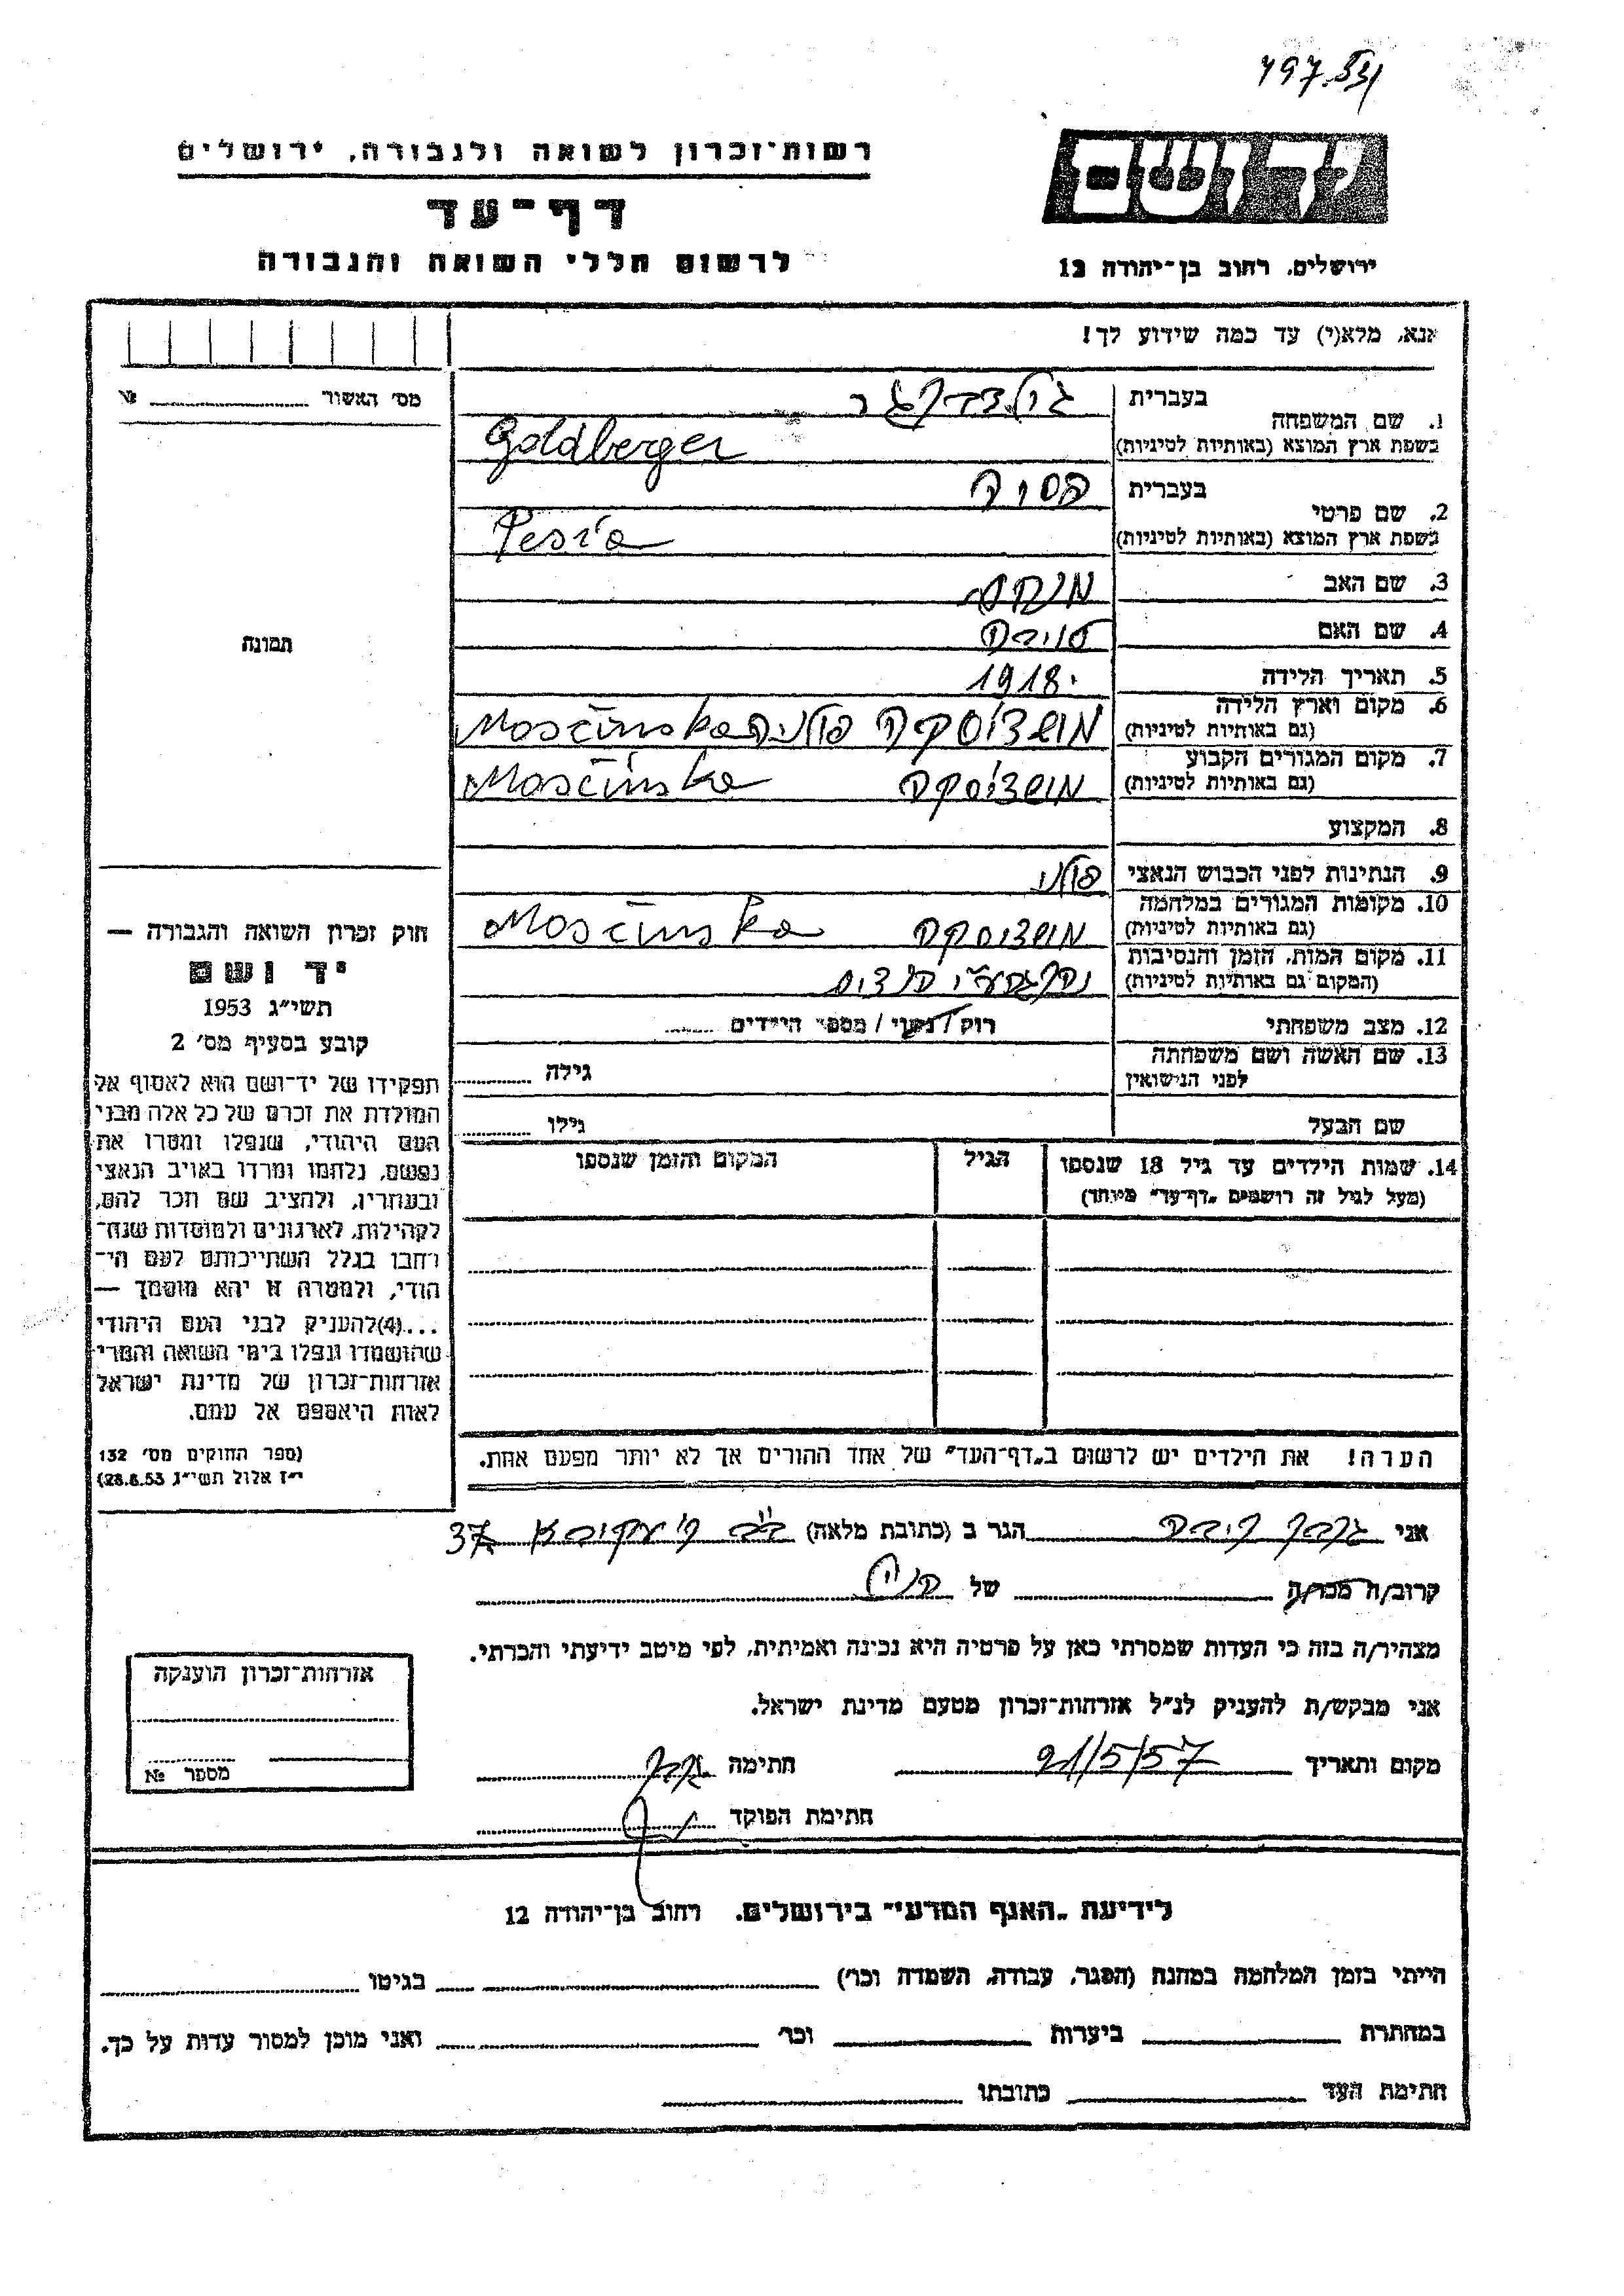 797.
רשות־זכרון לשואה ולגבורה, ירושלים
דף־עד
לרשום חללי השואה והגבורה
יד ושם
ירושלים, רחוב בן־יהודה 12
אנא, מלא(י) עד כמה שידוע לך!
מס׳ האשור № 
1. שם המשפחה בעברית גולדברגר
בשפת ארץ המוצא (באותיות לטיניות) Goldberger
2. שם פרטי בעברית פסיה
בשפת ארץ המוצא (באותיות לטיניות) Pesia
3. שם האב מנחם
4. שם האם טויבה
5. תאריך הלידה 1918
6. מקום וארץ הלידה (גם באותיות לטיניות) מושצ׳יסקה פולניה Mosčinska
7. מקום המגורים הקבוע (גם באותיות לטיניות) מושצ׳יסקה Mosčinska
8. המקצוע
9. הנתינות לפני הכבוש הנאצי פולני
10. מקומות המגורים במלחמה (גם באותיות לטיניות) מושציסקה Mosčinska
11. מקום המות, הזמן והנסיבות (המקום גם באותיות לטיניות) נהרגה ע״י הנצים
12. מצב משפחתי רוק / נשוי / מספר הילדים
13. שם האשה ושם משפחתה לפני הנישואין גילה
שם הבעל גילו
14. שמות הילדים עד גיל 18 שנספו הגיל המקום והזמן שנספו
(מעל לגיל זה רושמים „דף־עד״ מיוחד)
הערה! את הילדים יש לרשום ב„דף־העד״ של אחד ההורים אך לא יותר מפעם אחת.
תמונה
חוק זכרון השואה והגבורה —
יד ושם
תשי״ג 1953
קובע בסעיף מס׳ 2
תפקידו של יד־ושם הוא לאסוף אל
המולדת את זכרם של כל אלה מבני
העם היהודי, שנפלו ומסרו את
נפשם, נלחמו ומרדו באויב הנאצי
ובעוזריו, ולהציב שם וזכר להם,
לקהילות, לארגונים ולמוסדות שנח־
רחבו בגלל השתייכותם לעם הי־
הודי, ולמטרה זו יהא מוסמך —
...(4)להעניק לבני העם היהודי
שהושמדו ונפלו בימי השואה והמרי
אזרחות־זכרון של מדינת ישראל
לאות היאספם אל עמם.
(ספר החוקים מס׳ 132
י״ז אלול תשי״ג 28.8.53)
אני הגר ב (כתובת מלאה) ר׳ עקיבא 37
קרוב/ה מכר/ה של
מצהיר/ה בזה כי העדות שמסרתי כאן על פרטיה היא נכונה ואמיתית, לפי מיטב ידיעתי והכרתי.
אני מבקש/ת להעניק לנ״ל אזרחות־זכרון מטעם מדינת ישראל.
מקום ותאריך 21/5/57 חתימה
חתימת הפוקד
אזרחות־זכרון הוענקה
מספר №
לידיעת „האגף המדעי״ בירושלים, רחוב בן־יהודה 12
הייתי בזמן המלחמה במחנה (הסגר, עבודה, השמדה וכו׳) בגיטו
במחתרת ביערות וכו׳ ואני מוכן למסור עדות על כך.
חתימת העד כתובתו